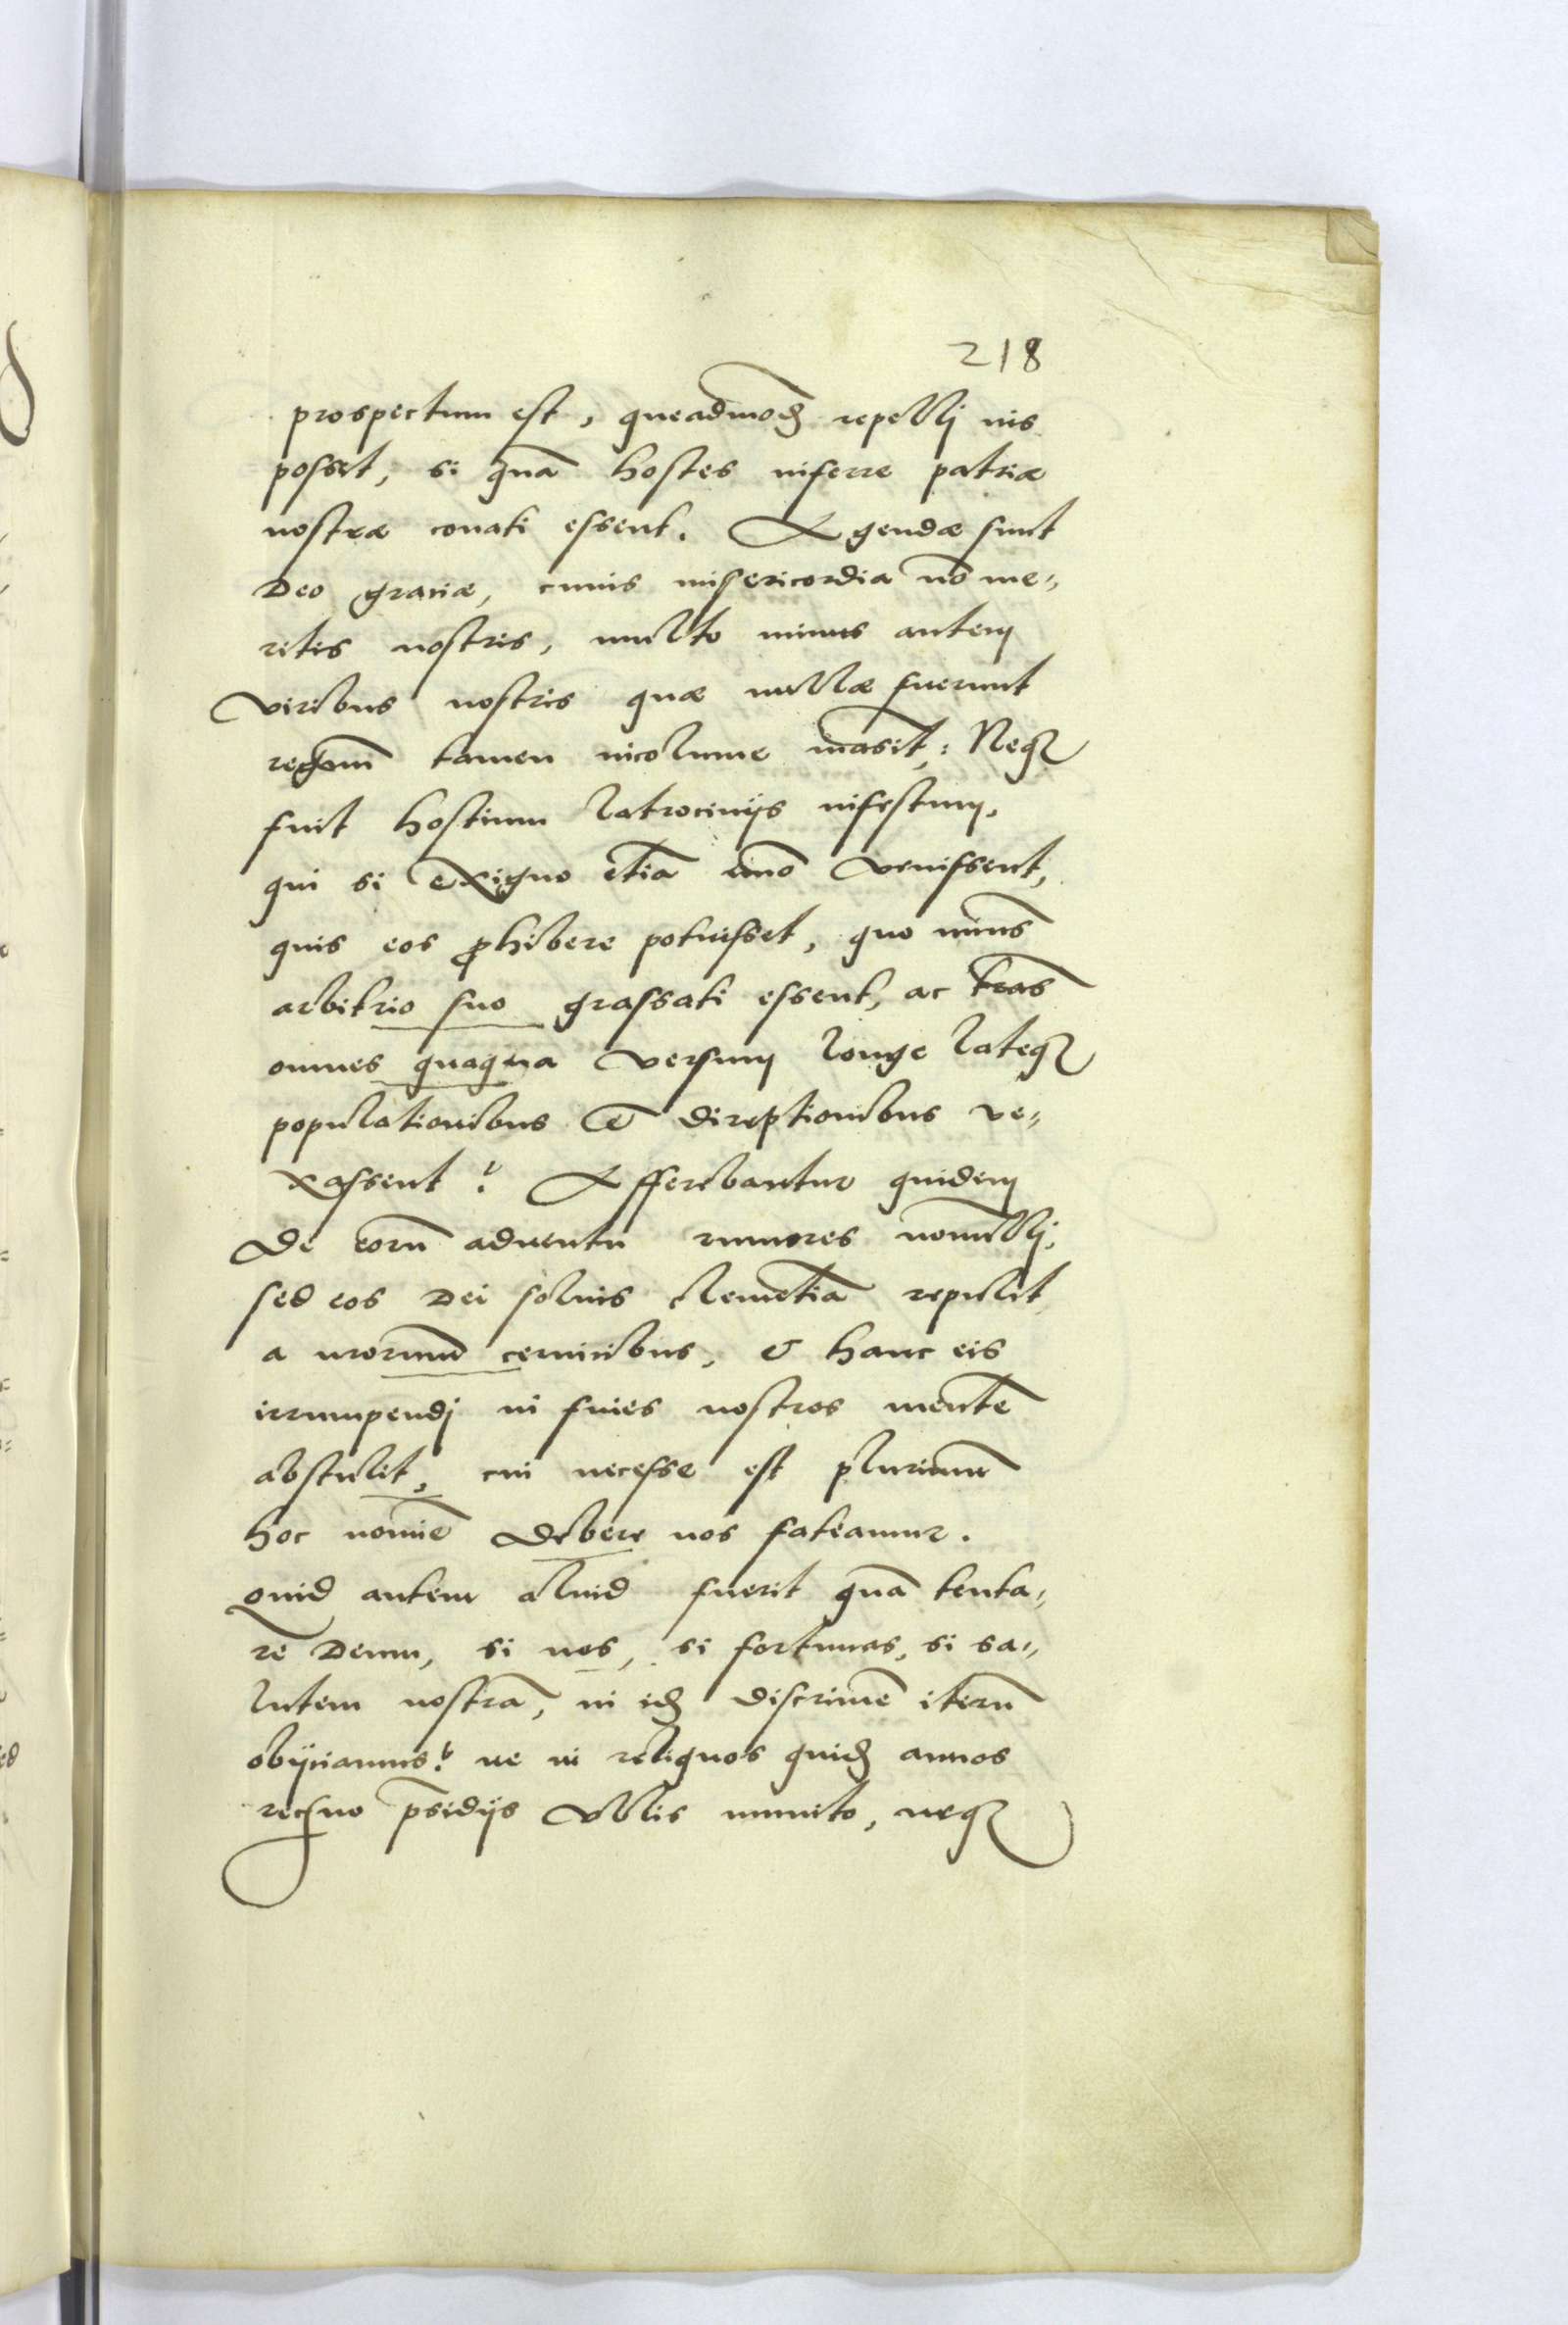 218
prospectum est, queadmod repellj uis
posset, si quā hostes inferre patriæ
nostræ conati essent. Agendæ sunt
Deo gratiæ, cuius misericordia nō me„
ritis nostris, multo minus autem
viribus nostris quæ nullæ fuerunt
regnum tamen incolume māsit: Neq₃
fuit hostium latrocinijs infestum,
qui si exiguo etiā venissent,
quis eos ꝓhibere potuisset, quo minus
arbitrio suo grassati essent, ac tras
omnes quaqua versum longe lateq₃
populationibus & direptionibus ve„
xassent? Afferebantur quidem
De eorū aduentu rumores nonnullj,
sed eos Dei solius clemētia repulit
a nrorum ceruicibus, & hanc eis
irrumpendj in fines nostros mentē
abstulit, cui necesse est plurimum
hoc nomīe debere nos fateamur.
Quid autem aliud fuerit quā tenta„
re Deum, si nos, si fortunas, si sa„
lutem nostrā, in id discrimē iterū
obijciamus? ne in reliquos quid annos
regno p̄sidijs vllis munito, neq₃